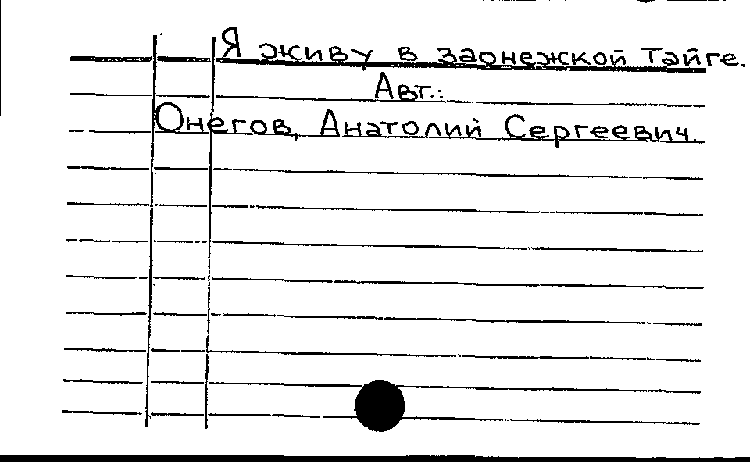 Я живу в заонежской тайге.
Авт.:
Онегов, Анатолий Сергеевич.